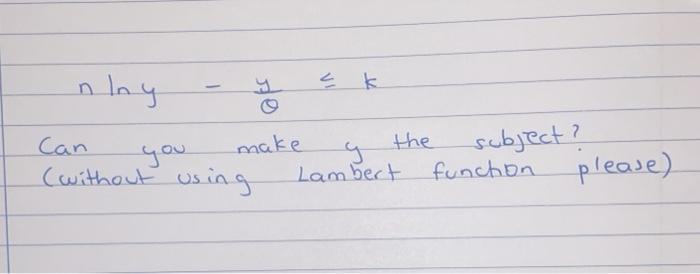 n ln y - y/θ ≤ k
Can you make y the subject?
(without using Lambert function please)